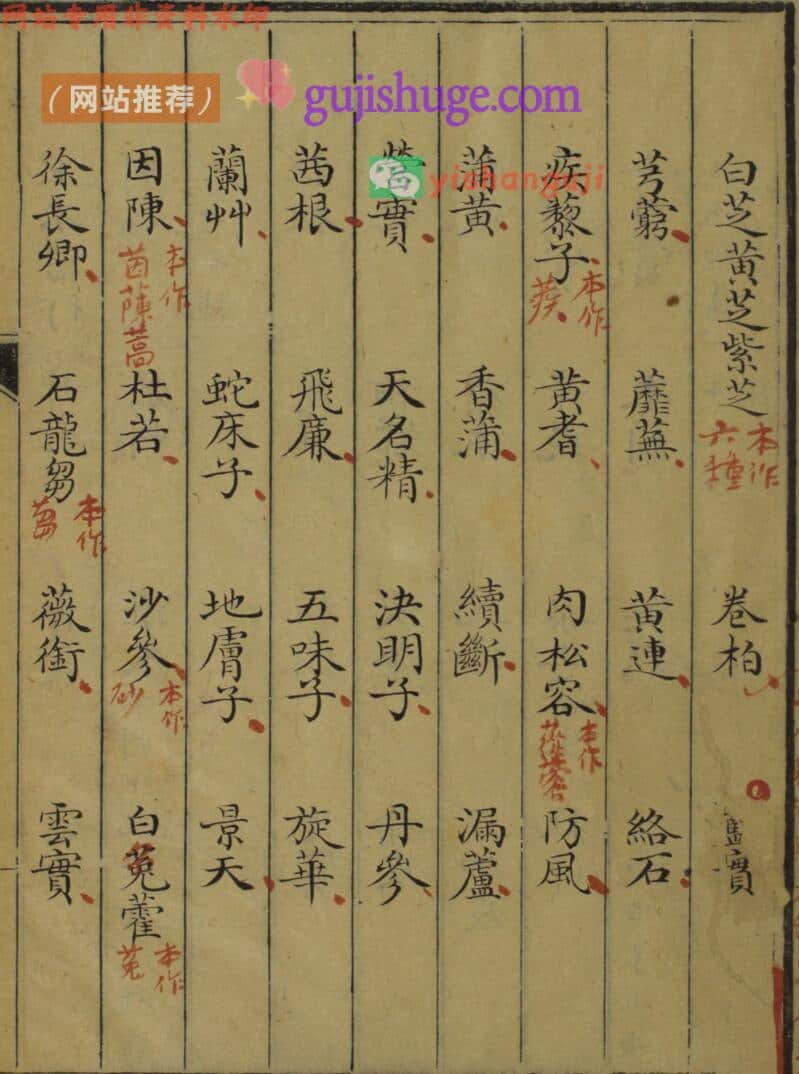 网站专用非资料水印
（网站推荐） gujishuge.com
yishanguji
白芝黄芝紫芝 本作六種 卷柏 實
芎藭 蘼蕪 黄連 絡石
疾藜子 本作蒺 黄耆 肉松容 本作蓯蓉 防風
蒲黄 香蒲 續斷 漏蘆
營實 天名精 決明子 丹參
茜根 飛廉 五味子 旋華
蘭艸 蛇床子 地膚子 景天
因陳 本作茵蔯蒿 杜若 沙參 本作砂 白菟藿 本作莵
徐長卿 石龍芻 本作蒭 薇銜 雲實